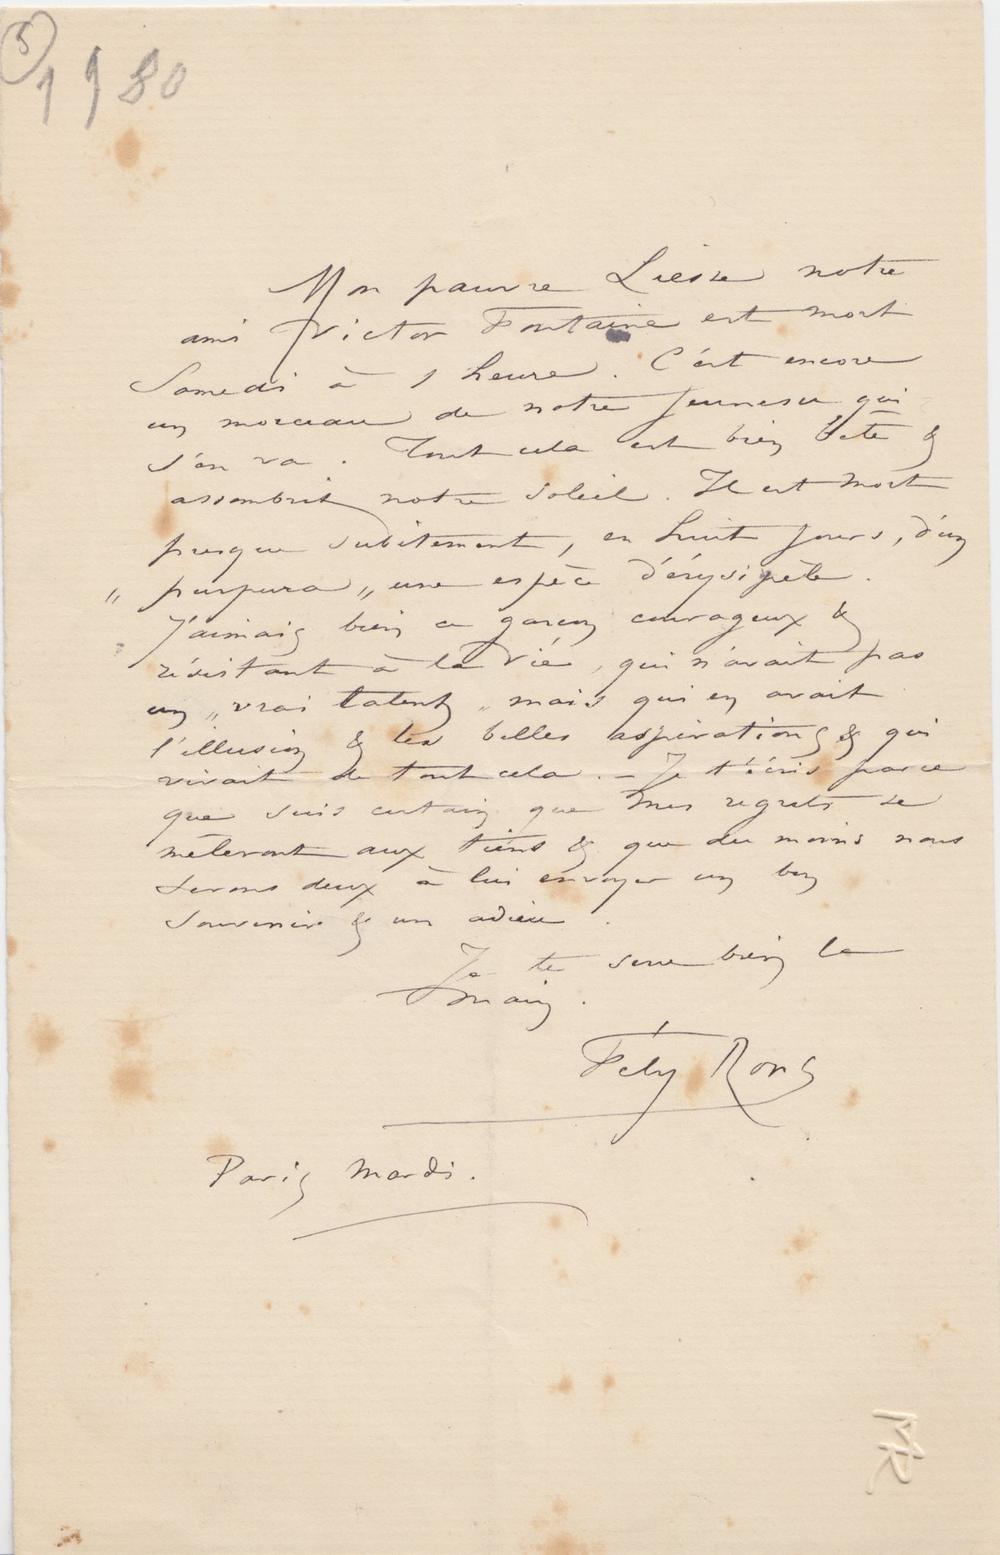 5
1980
Mon pauvre Liesse notre
ami Victor Fontaine est mort
Samedi à 1 heure. C'est encore
un morceau de notre jeunesse qui
s'en va. Tout cela est bien bête &
assombrit notre soleil. Il est mort
presque subitement, en huit jours, d'un
" purpura " une espèce d'érysipèle.
J'aimais bien ce garçon courageux &
résistant à la vie, qui n'avait pas
un " vrai talent " mais qui en avait
l'illusion & les belles aspirations & qui
vivait de tout cela. – Je t'écris parce
que suis certain que mes regrets se
mêleront aux tiens & que du moins nous
serons deux à lui envoyer un bon
souvenir & un adieu.
Je te serre bien la
main.
Fély Rops
Paris Mardi.